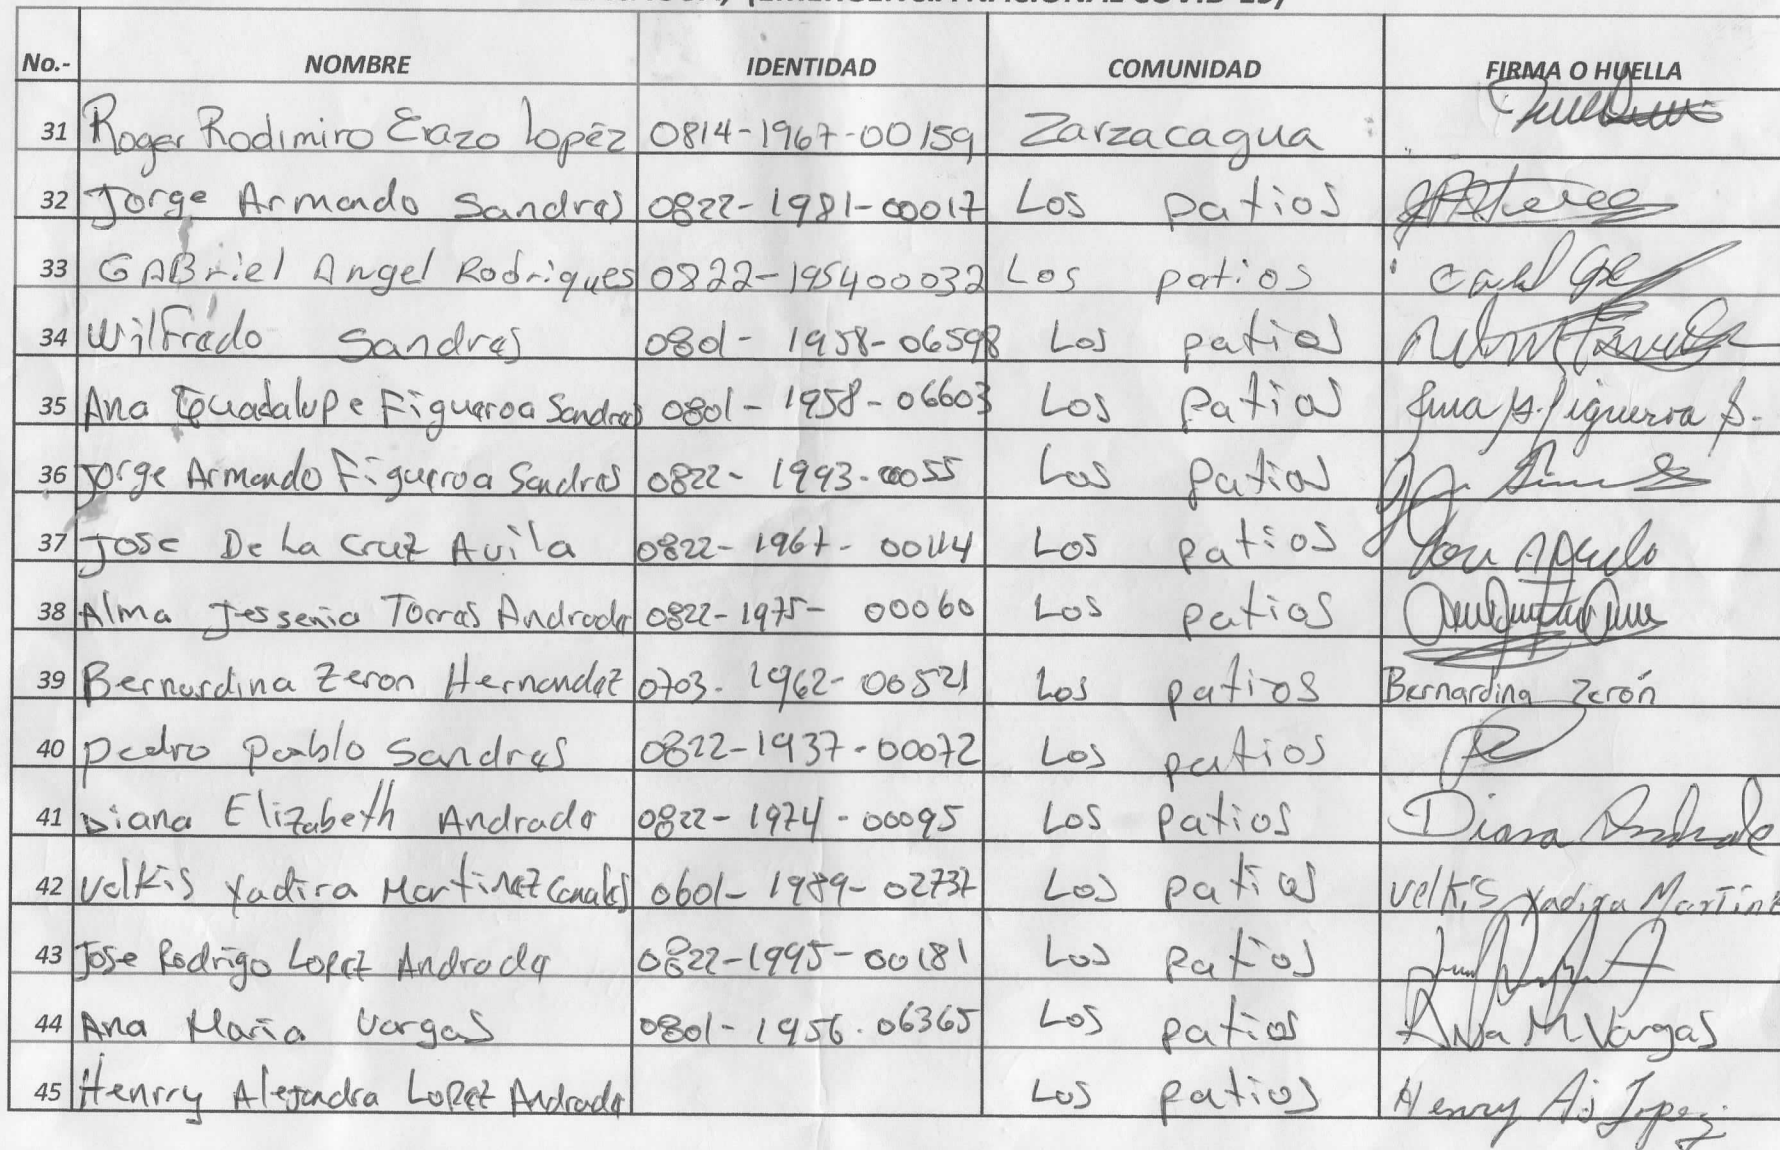 (EMERGENCIA NACIONAL COVID-19)
No.- NOMBRE IDENTIDAD COMUNIDAD FIRMA O HUELLA
31 Roger Rodimiro Erazo Lopéz 0814-1967-00159 Zarzacagua
32 Jorge Armando Sandres 0822-1981-00017 Los patios
33 GABriel Angel Rodriques 0822-195400032 Los patios
34 Wilfredo Sandres 0801-1958-06598 Los patios
35 Ana Guadalupe Figueroa Sandres 0801-1958-06603 Los Patios Ana G. Figueroa S.
36 Jorge Armando Figueroa Sandres 0822-1993-00055 Los patios
37 Jose De La Cruz Avila 0822-1967-00114 Los patios
38 Alma Jessenia Torres Andrade 0822-1975-00060 Los patios
39 Bernardina Zeron Hernandez 0703-1962-00521 Los patios Bernardina Zerón
40 pedro pablo Sandres 0822-1937-00072 Los patios
41 Diana Elizabeth Andrade 0822-1974-00095 Los patios Diana Andrade
42 Velkis Yadira Martinez Canales 0601-1989-02737 Los patios Velkis Yadira Martine
43 Jose Rodrigo Lopez Andrade 0822-1995-00181 Los patios
44 Ana Maria Vargas 0801-1956-06365 Los patios Ana M. Vargas
45 Henrry Alejandra Lopez Andrade Los patios Henry Al Lopez